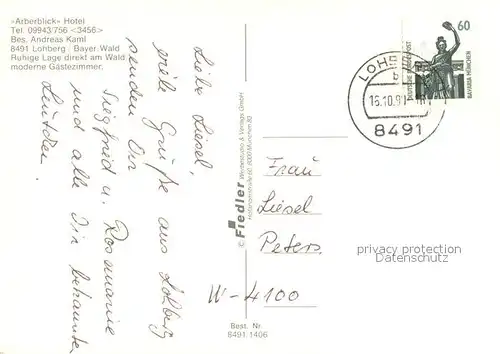 »Arberblick« Hotel
Tel. 09943/756 <3456>
Bes. Andreas Kaml
8491 Lohberg · Bayer. Wald
Ruhige Lage direkt am Wald,
moderne Gästezimmer.
Liebe Liesel,
viele Grüße aus Lohberg
senden Dir
Siegfried u. Rosmarie
und alle Dir bekannten
Leutchen.
© Fiedler Werbestudio & Verlags GmbH
8000 München 83
Best. Nr.
8491 1406
60
DEUTSCHE BUNDESPOST
BAVARIA MÜNCHEN
LOHBERG
b
16.10.90
8491
Frau
Liesel
Peters
W-4100
privacy protection
Datenschutz